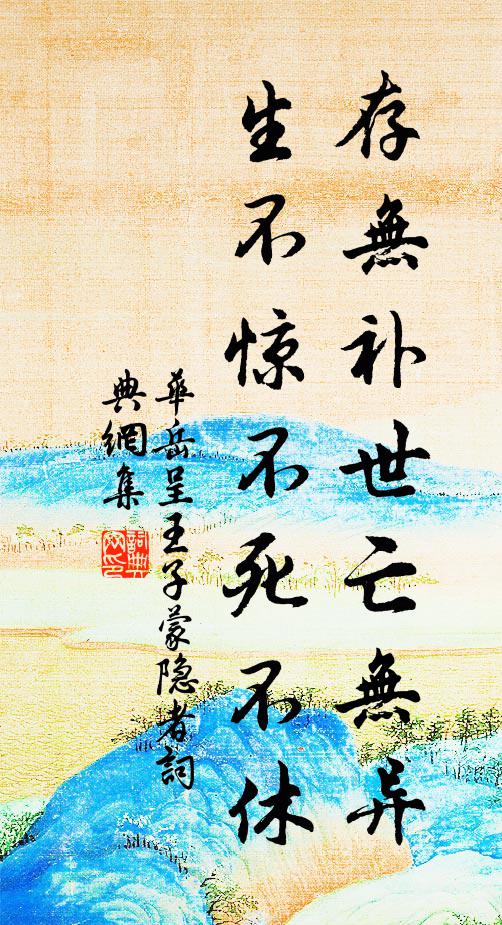 存無补世亡無异
生不惊不死不休
華岳呈王子蒙隐者詞
典網集
詞典
网印